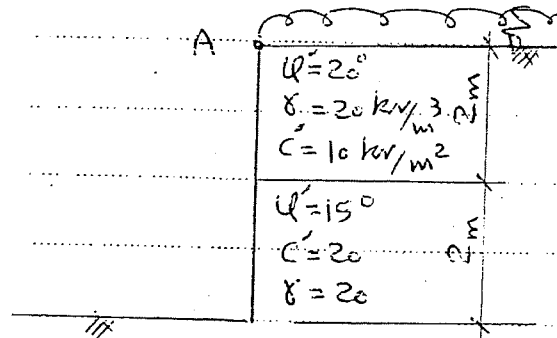 A
φ'=20°
γ = 20 kN/m³
c' = 10 kN/m²
2m
φ'=15°
c' = 20
γ = 20
2m